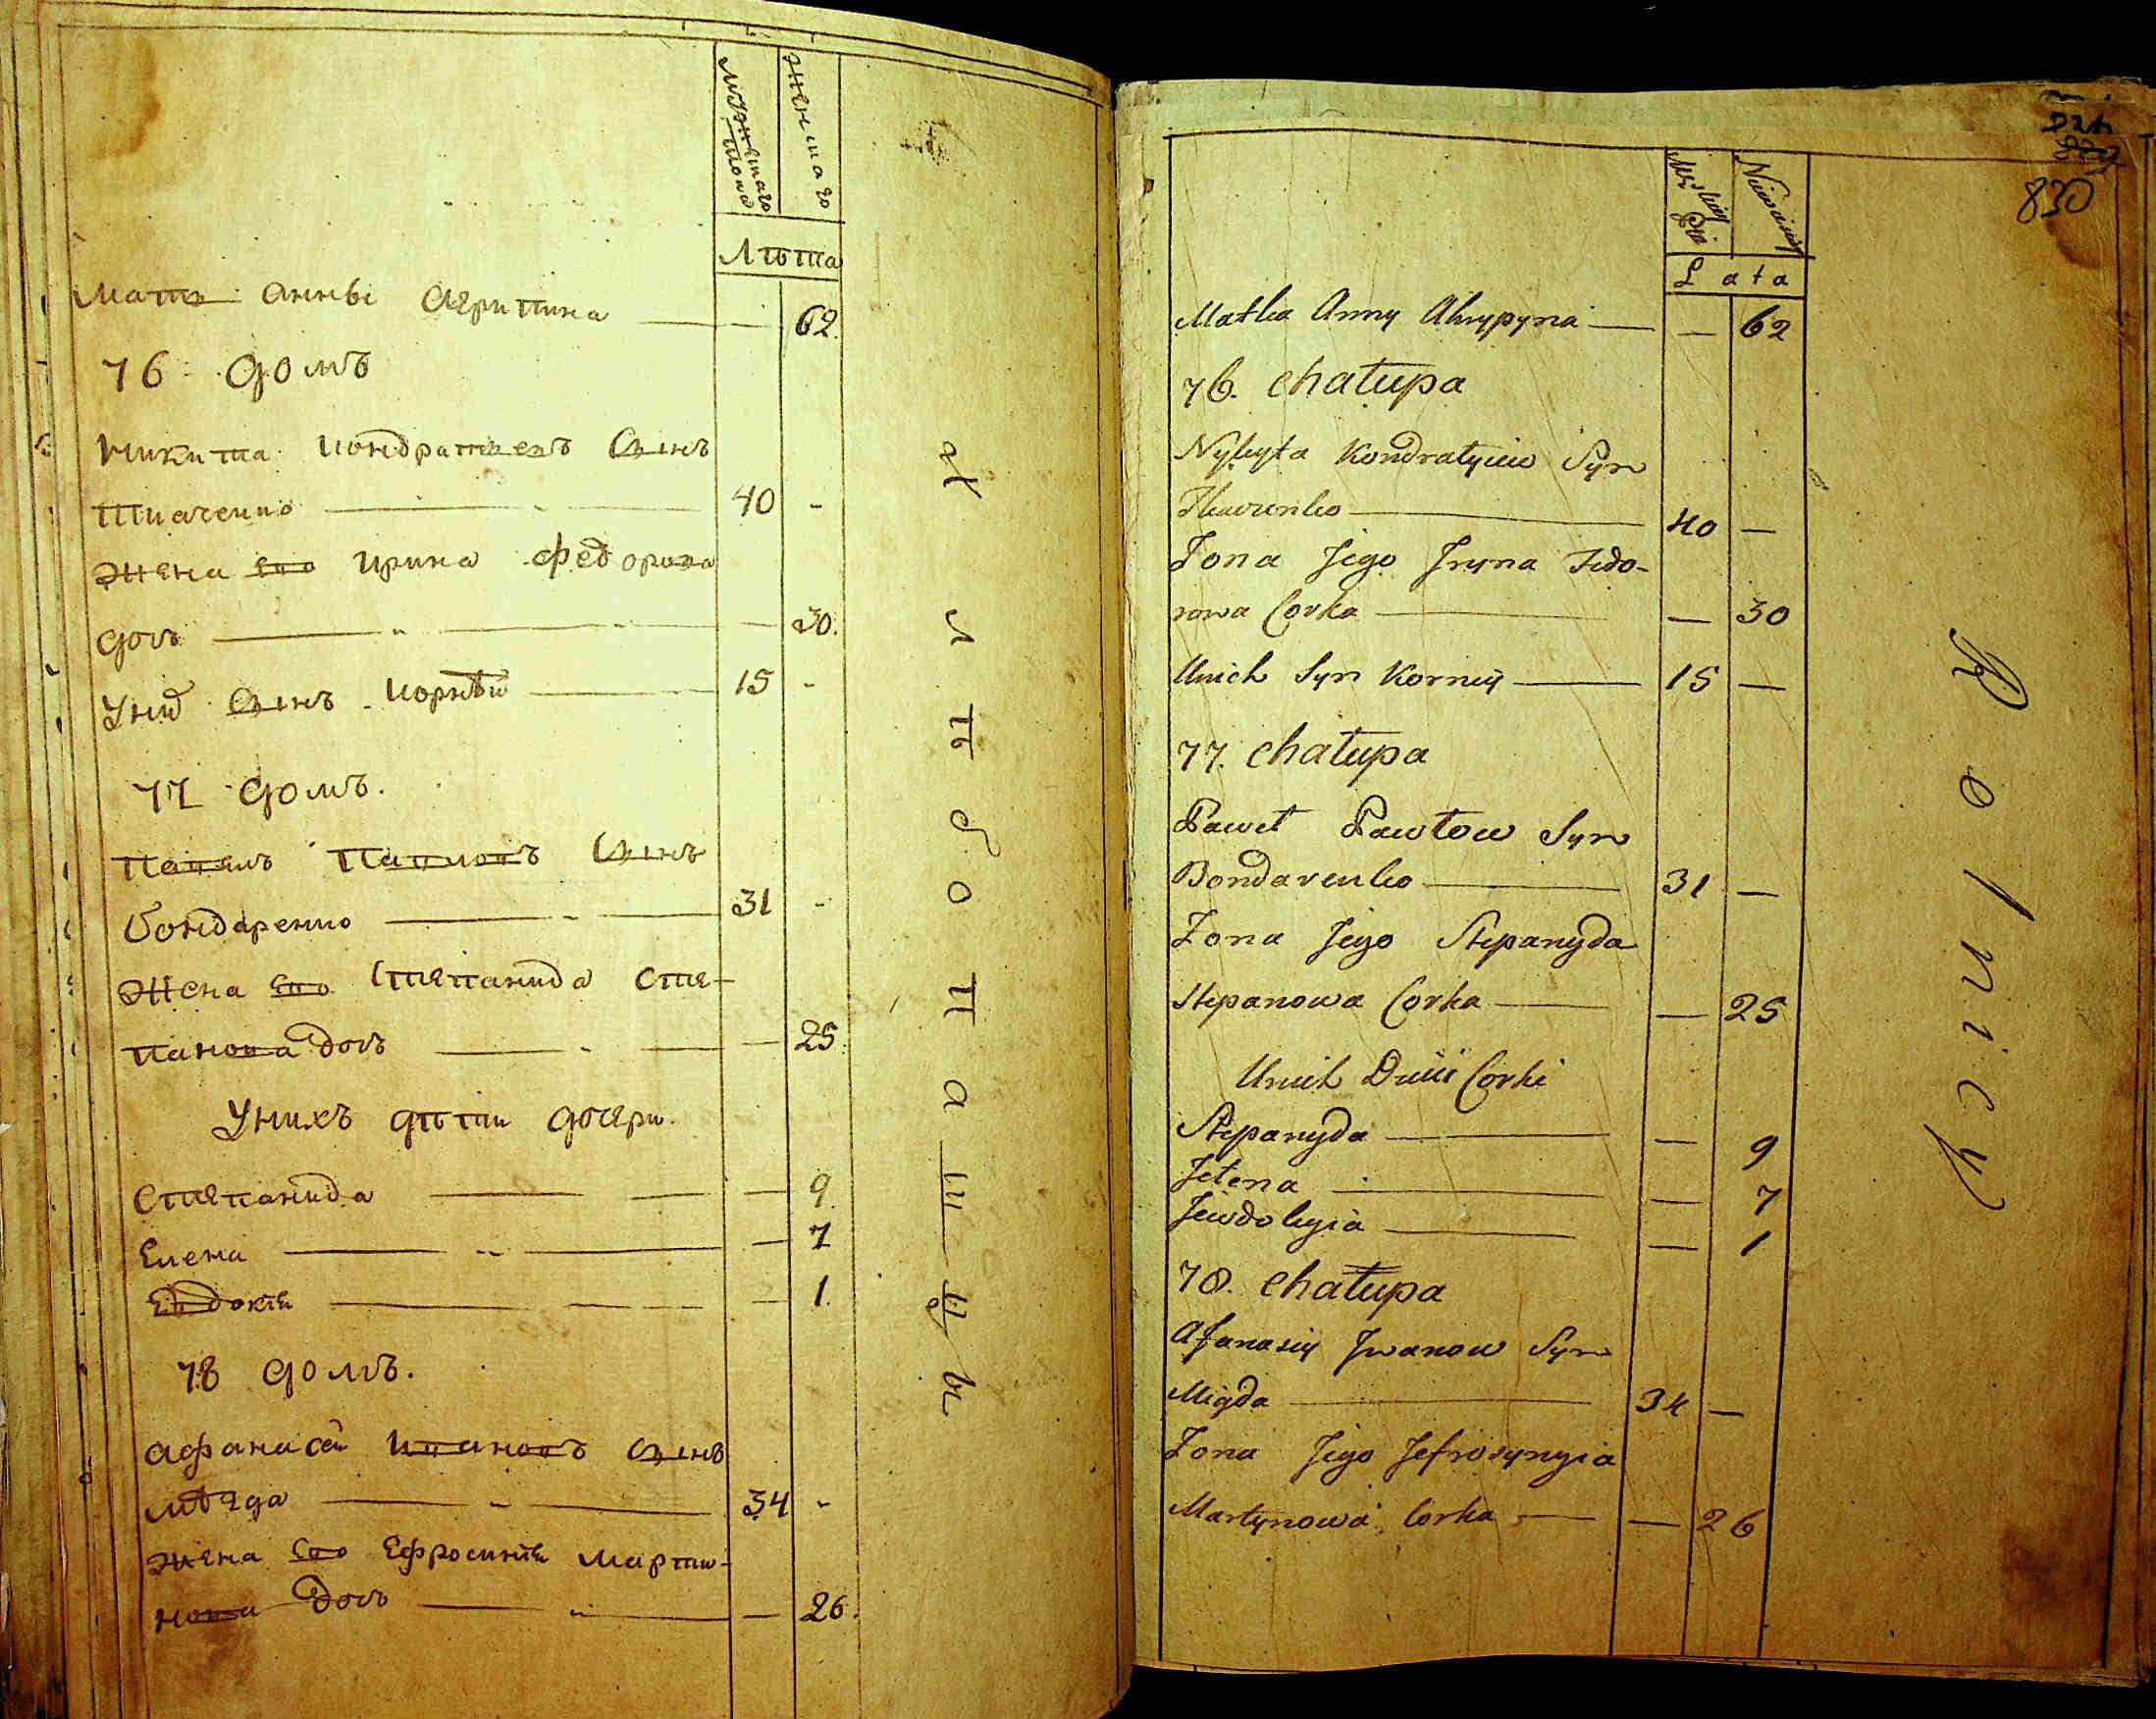 Мужеска
пола
Женска
Лѣта
Мать Анны Агрипина — — 62.
76 домъ
Никита Кондратьевъ Сынъ
Ткаченко — 40 -
Жена Его Ирина Федорова
дочь — — 30.
У них Сынъ Корнѣй — 15 -
77 домъ.
Павелъ Павловъ Сынъ
Бондаренко — 31 -
Жена Его Степанида Сте-
панова дочь — — 25.
У нихъ дѣти дочери.
Степанида — — 9.
Елена — — 7
Евдокія — — 1.
78 домъ.
Афанасій Ивановъ Сынъ
Мегда — 34 -
Жена Его Ефросинія Марти-
нова дочь — — 26.
Хлѣбопашцы
830
Męskiey
Płci
Niewieściey
Lata
Matka Anny Ahrypyna — — 62
76. Chałupa
Nykyta Kondratyiew Syn
Tkaczenko — 40 —
Żona Jego Iryna Fedo-
rowa Corka — — 30
Unich Syn Korniy — 15 —
77. Chałupa
Paweł Pawłow Syn
Bondarenko — 31 —
Żona Jego Stepanyda
Stepanowa Corka — — 25
Unich Dzieci Corki
Stepanyda — — 9
Jełena — — 7
Jewdokyia — — 1
78. Chałupa
Afanasiy Iwanow Syn
Migda — 34 —
Żona Jego Jefrosynyia
Martynowa Corka — — 26
Rolnicy